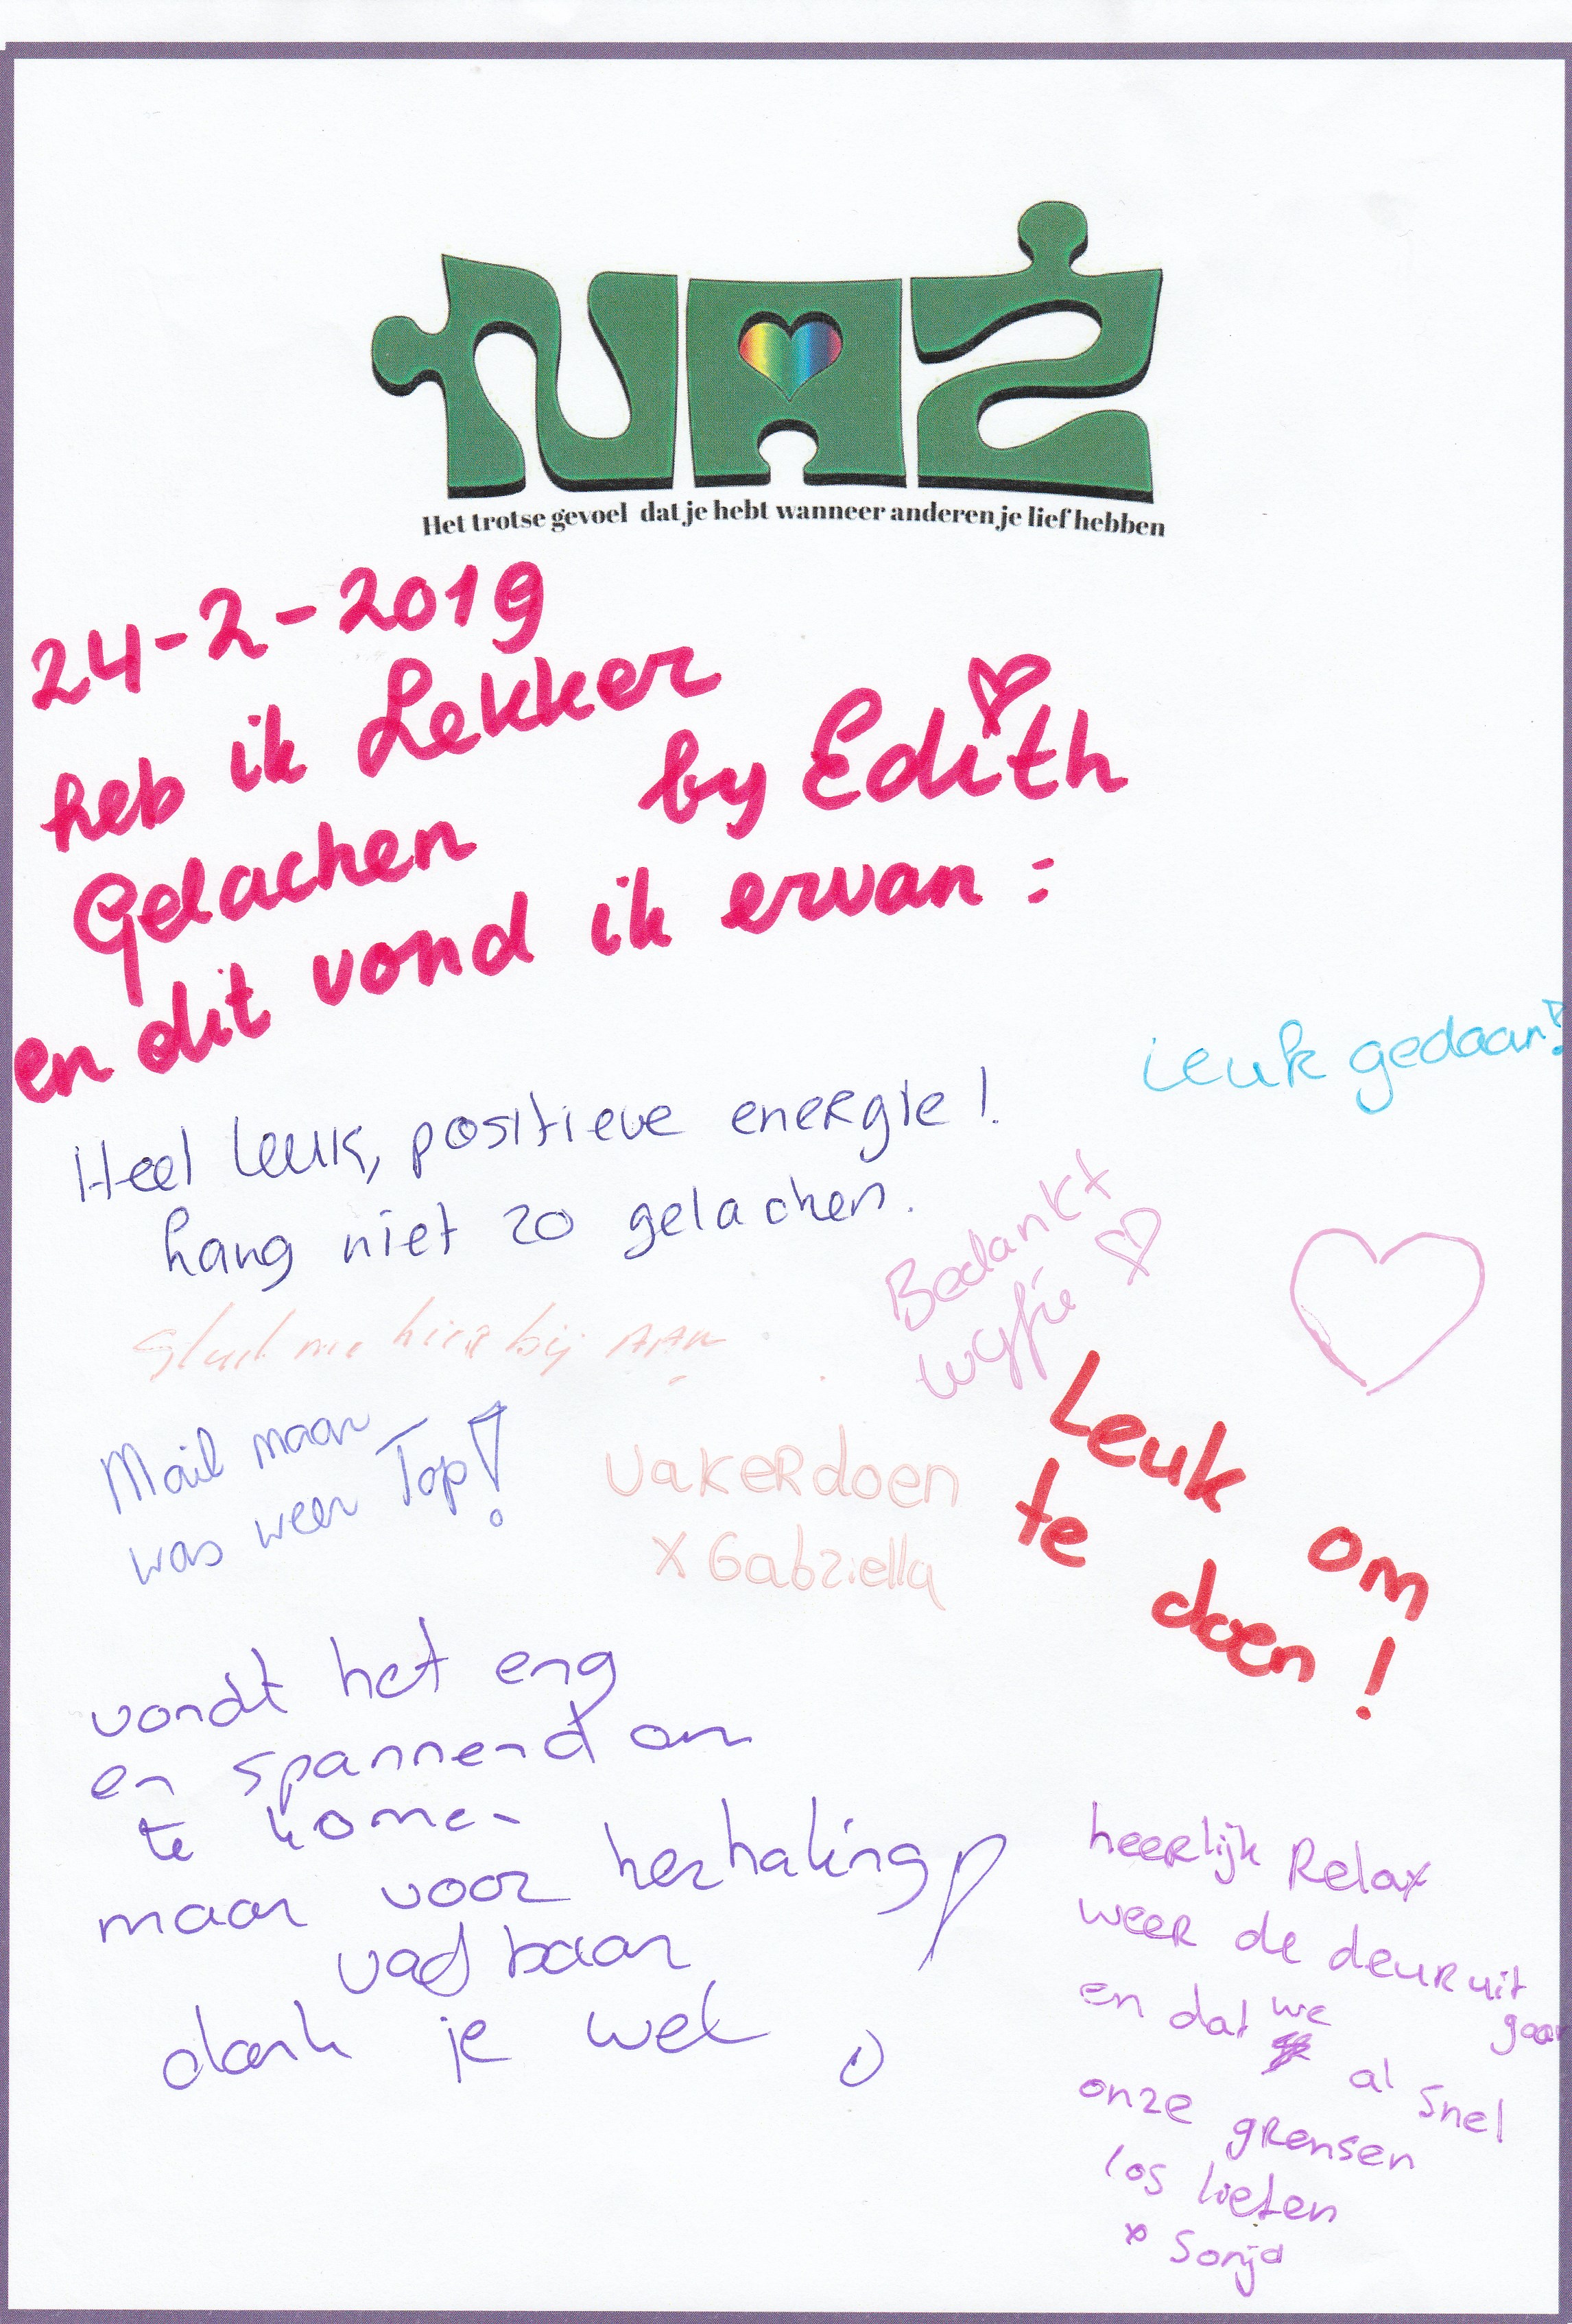 NAZ
Het trotse gevoel dat je hebt wanneer anderen je lief hebben
24-2-2019
heb ik Lekker
Gelachen by Edith
en dit vond ik ervan :
Leuk gedaan!
Heel leuk, positieve energie!
Lang niet zo gelachen.
Bedankt
wyfie
me hier bij AAN
Mail maar
was weer Top!
Vaker doen
x Gabriella
Leuk om
te doen!
vondt het eng
en spannend om
te komen
maar voor herhaling
vadbaar
dank je wel
heerlijk Relax
weer de deur uit
gaan
en dat we al snel
onze grensen
los lieten
x Sonja